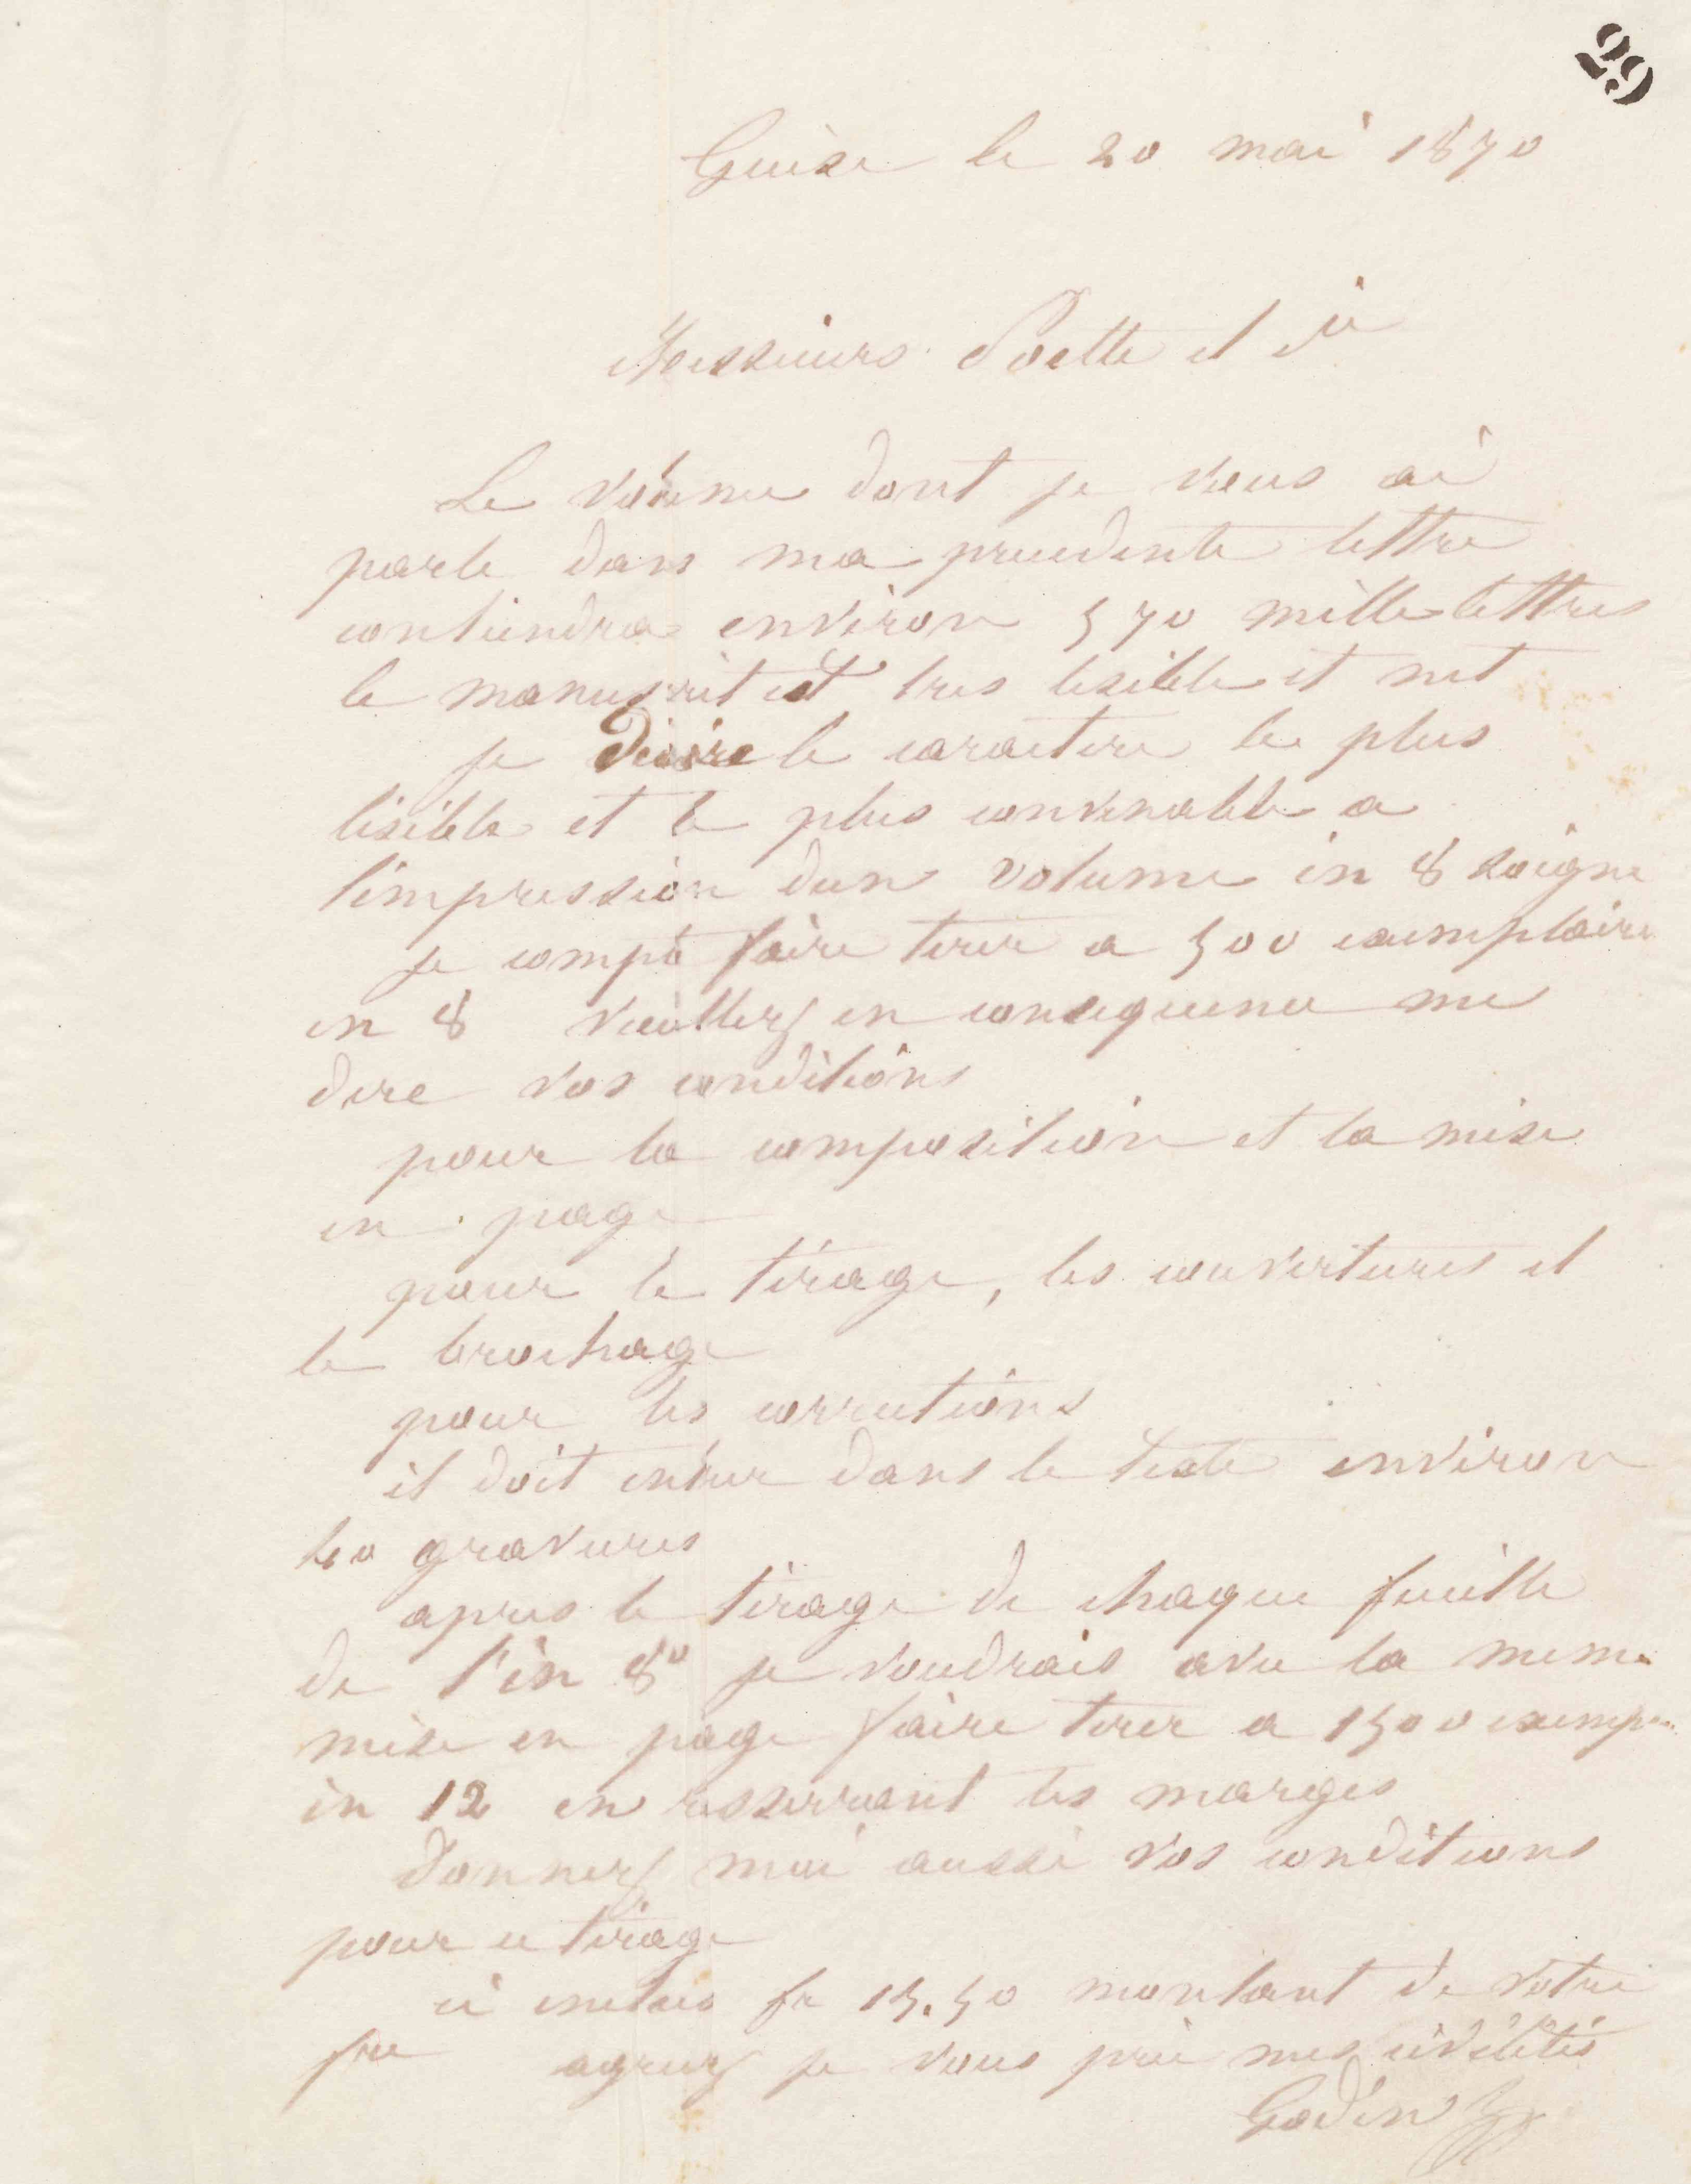 29
Guise le 20 mai 1870
Messieurs Poette et Cie
Le volume dont je vous ai
parle dans ma precedente lettre
contiendra environ 570 mille lettres
le manuscrit est tres lisible et net
je désire le caractere le plus
lisible et le plus convenable a
l'impression dun volume in 8 soigne
je compte faire tirer a 500 exemplaires
in 8 veuillez en consequence me
dire vos conditions
pour la composition et la mise
en page
pour le tirage, les couvertures et
le brochage
pour les corrections
il doit entrer dans le texte environ
gravures
apres le tirage de chaque feuille
de l'in 8º je voudrais avec la meme
mise en page faire tirer a 1500 exemp
in 12 en resserrant les marges
Donnez moi aussi vos conditions
pour ce tirage
ci inclus fr 15.50 montant de votre
fre agreez je vous prie mes civilités
Godin